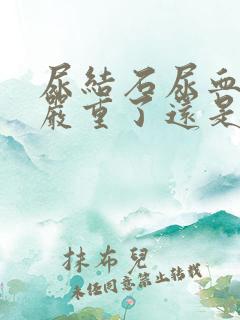 尿結石尿血
嚴重了還是
抹布兒
未經同意禁止轉載